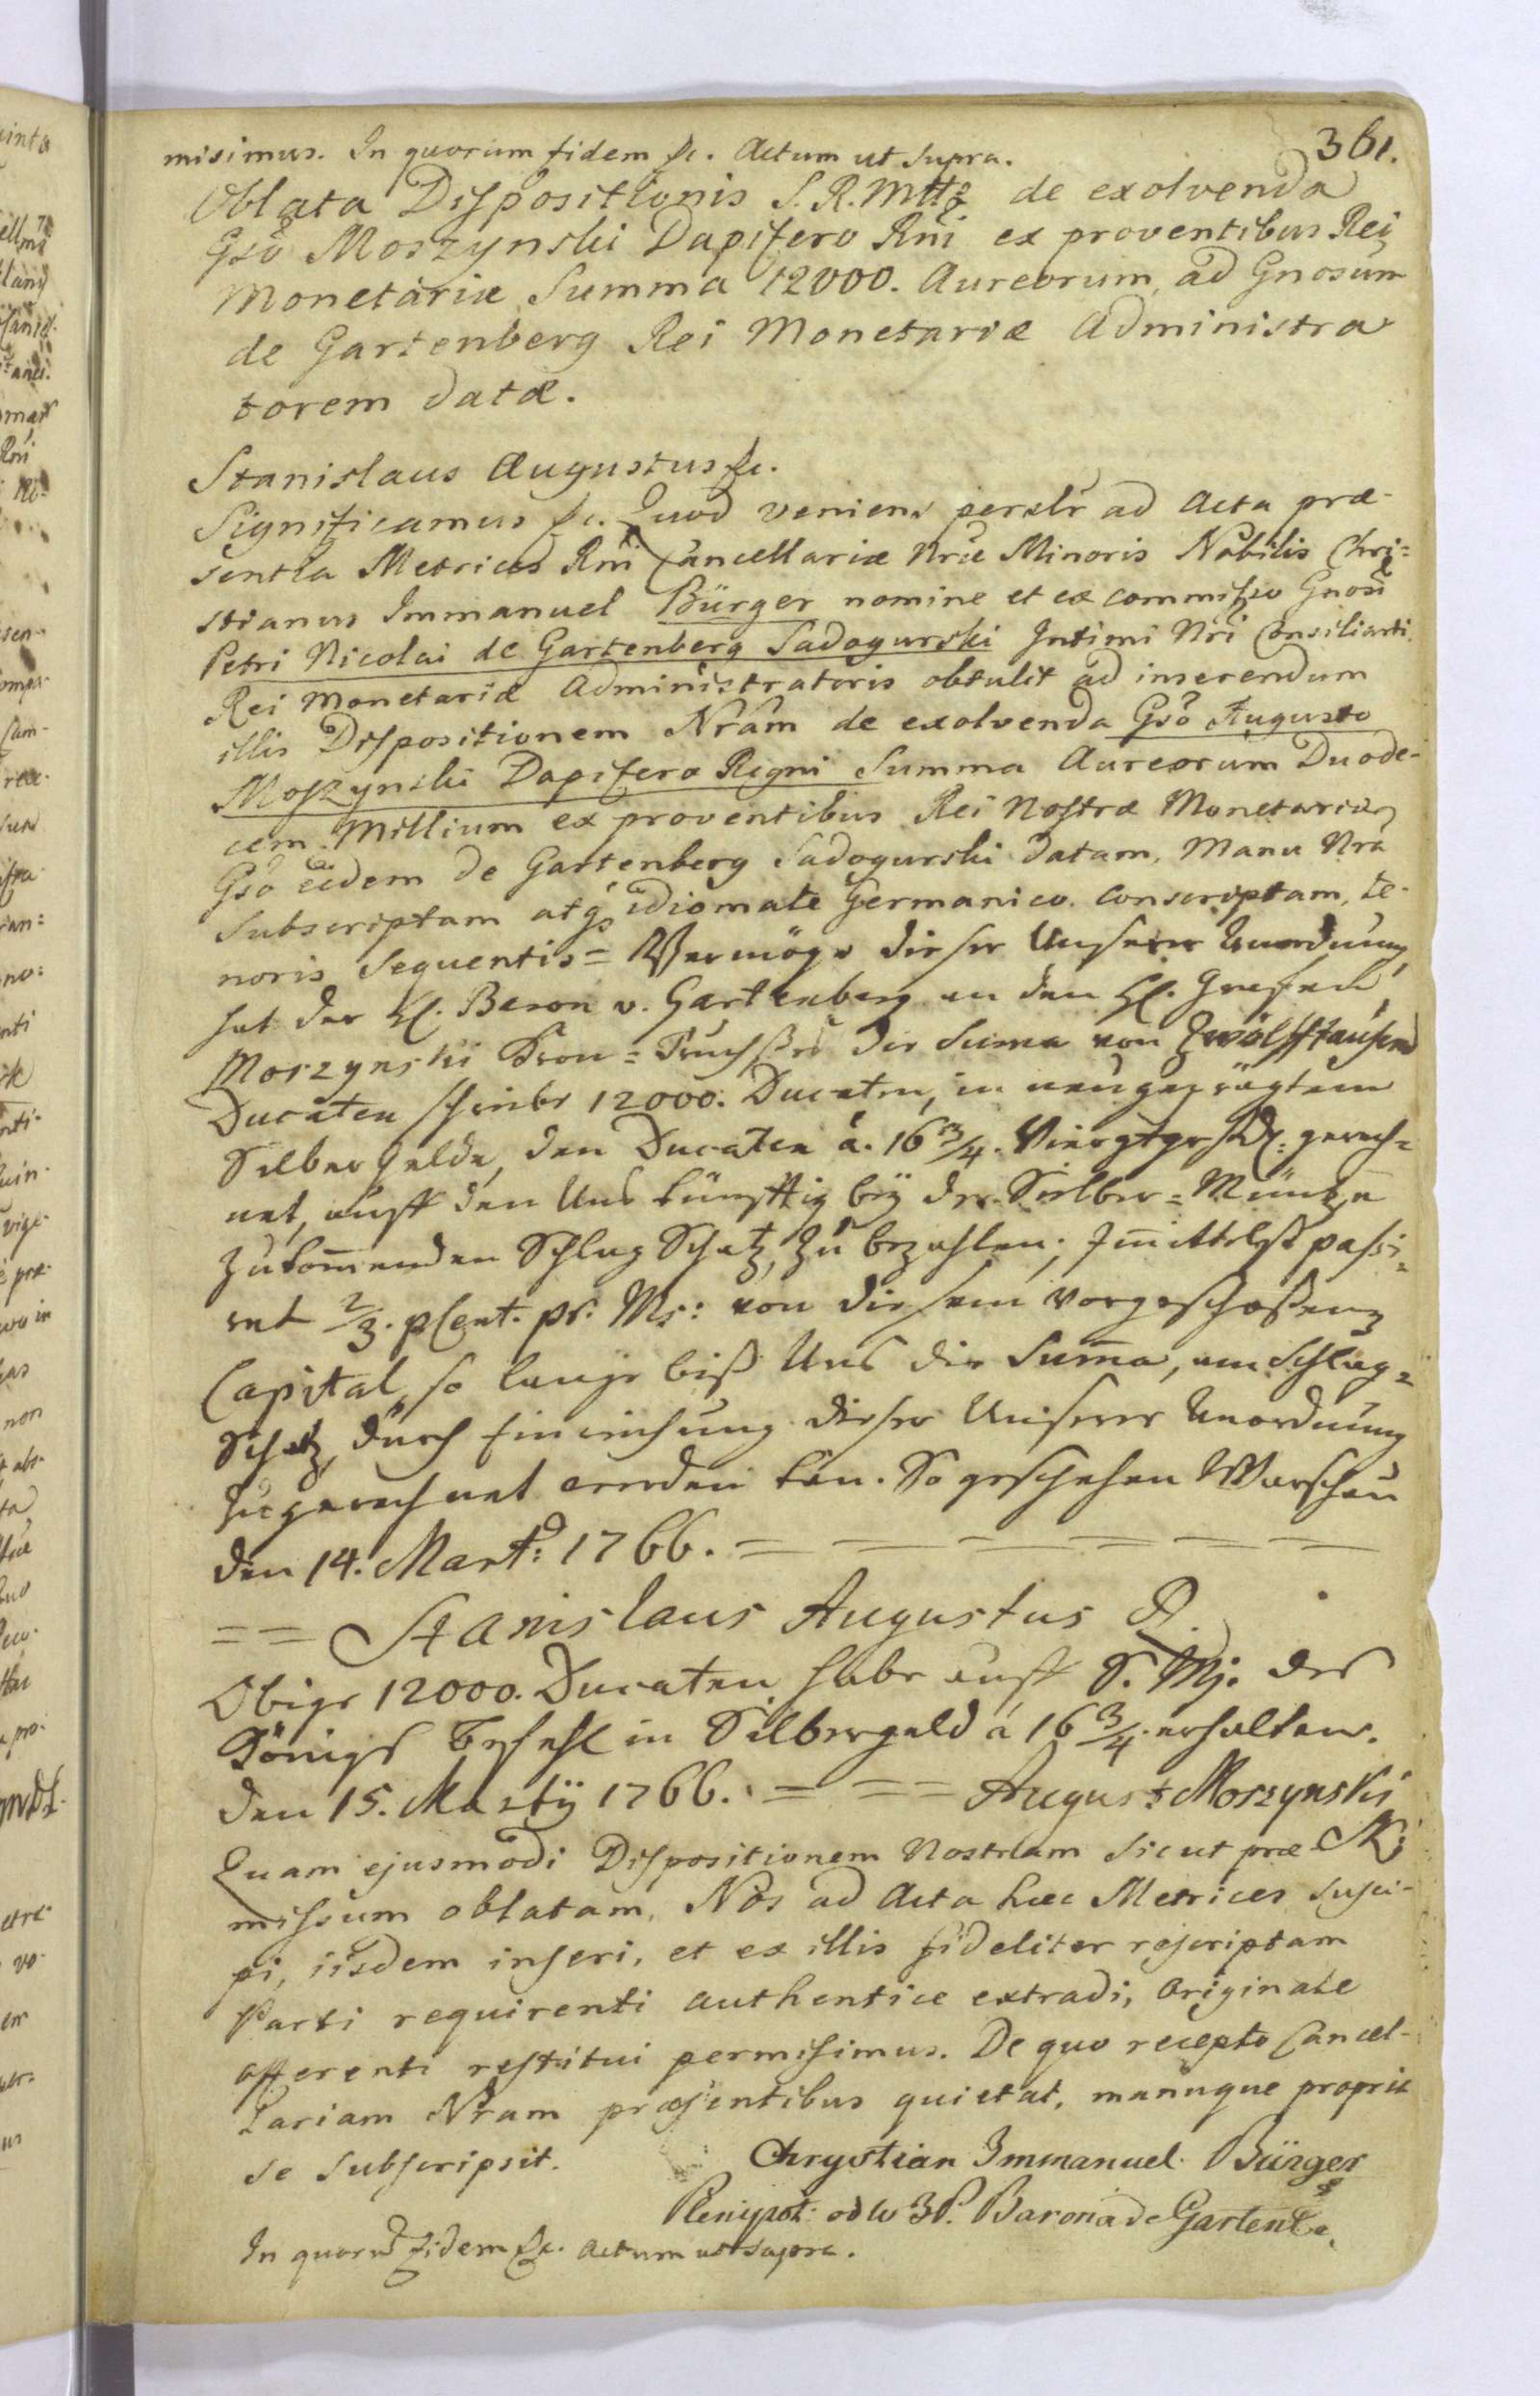 361.
misimus. In quorum fidem &c. Actum ut supra.
Oblata Dispositionis S. R. Mttis de exolvenda
Gso Moszynski Dapifero Rni ex proventibus Rei
Monetariæ Summa 12000. Aureorum, ad Gnosum
de Gartenberg Rei Monetariæ Administra
torem datæ.
Stanislaus Augustus &c.
Significamus &c. Quod veniens persltr ad Acta præ-
sentia Metrices Rni Cancellariæ Nræ Minoris Nobilis Chri=
stianus Immanuel Bürger nomine et ex commisso Gnosi
Petri Nicolai de Gartenberg Sadogurski Intimi Nri Consiliarii
Rei Monetariæ Administratoris obtulit ad inserendum
illis Dispositionem Nram de exolvenda Gso Augusto
Moszynski Dapifero Regni Summa Aureorum Duode-
cem Millium ex proventibus Rei Nostræ Monetariæ
Gso eidem de Gartenberg Sadogurski datam, Manu Nra
Subscriptam atqs idiomate Germanico conscriptam, te-
noris sequentis = Vermöge dieser Unserer Anordnung
hat der H. Baron v. Gartenberg an den H. Grafen
Moszynski Kron = Truchseß die Summa von Zwölfftausend
Ducaten schreibe 12000. Ducaten, in neugeprägtem
Silber Gelde, den Ducaten á. 16 3/4. gerech=
net, auff den Uns künfftig bey der Silber = Müntze
zukommenden Schlag Schatz, zu bezahlen; Immittelst passi=
ret 2/3. pCent. pr. Ms: von diesem vorgeschossenen
Capital, so lange biß Uns die Summa, am Schlag=
Schatz, durch Einreichung dieser Unserer Anordnung
zugerechnet werden kan. So geschehen Warschau
den 14. Mart: 1766. = = = = = = =
= = Stanislaus Augustus R.
Obige 12000. Ducaten habe auff S. Mj. des
Königs Befehl in Silbergeld á 16 3/4 erhalten.
den 15. Martÿ 1766. = = = August Moszynski
Quam ejusmodi Dispositionem Nostram sicut præ
missum oblatam, Nos ad Acta hæc Metrices susci-
pi, iisdem inseri, et ex illis fideliter rescriptam
Parti requirenti authentice extradi, Originale
afferenti restitui permisimus. De quo recepto Cancel-
lariam Nram præsentibus quietat, manuque propria
se subscripsit. Chrystian Immanuel Bürger
Plenipot: od W JP. Barona de Gartenbe.
In quorum fidem &c. Actum ut supra.